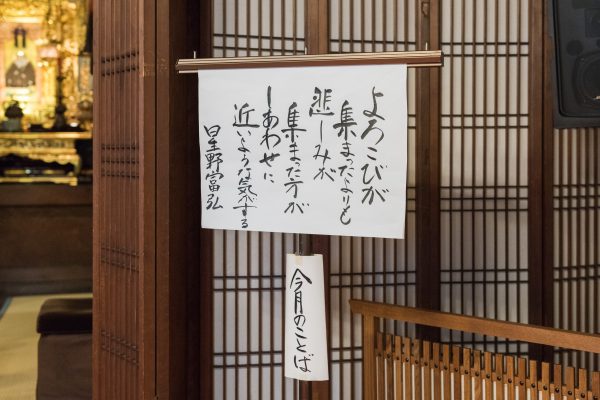 よろこびが
集まったよりも
悲しみが
集まった方が
しあわせに
近いような気がする
星野富弘
今月のことば